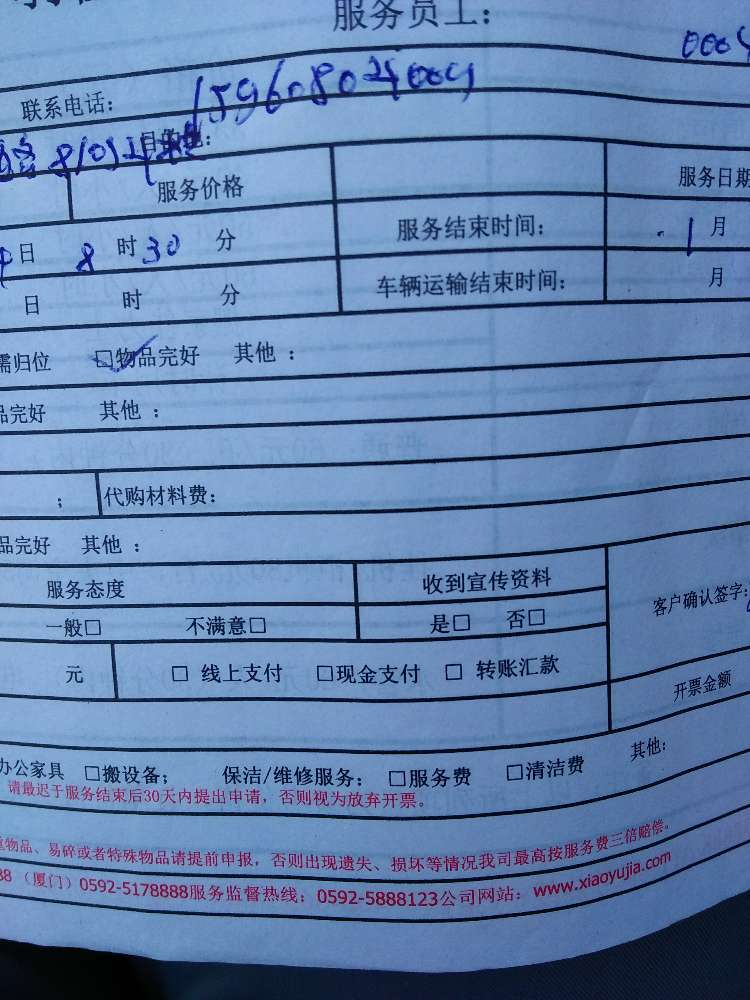 服务员工：
000
联系电话： 15960802400
810 目的地：
服务价格 服务日期
日 8 时 30 分 服务结束时间： 1 月
日 时 分 车辆运输结束时间： 月
需归位 ☑物品完好 其他：
品完好 其他：
； 代购材料费：
品完好 其他：
服务态度 收到宣传资料 客户确认签字：
一般□ 不满意□ 是□ 否□
元 □ 线上支付 □现金支付 □ 转账汇款
开票金额
办公家具 □搬设备； 保洁/维修服务： □服务费 □清洁费 其他：
请最迟于服务结束后30天内提出申请，否则视为放弃开票。
重物品、易碎或者特殊物品请提前申报，否则出现遗失、损坏等情况我司最高按服务费三倍赔偿。
88 （厦门）0592-5178888服务监督热线：0592-5888123公司网站：www.xiaoyujia.com